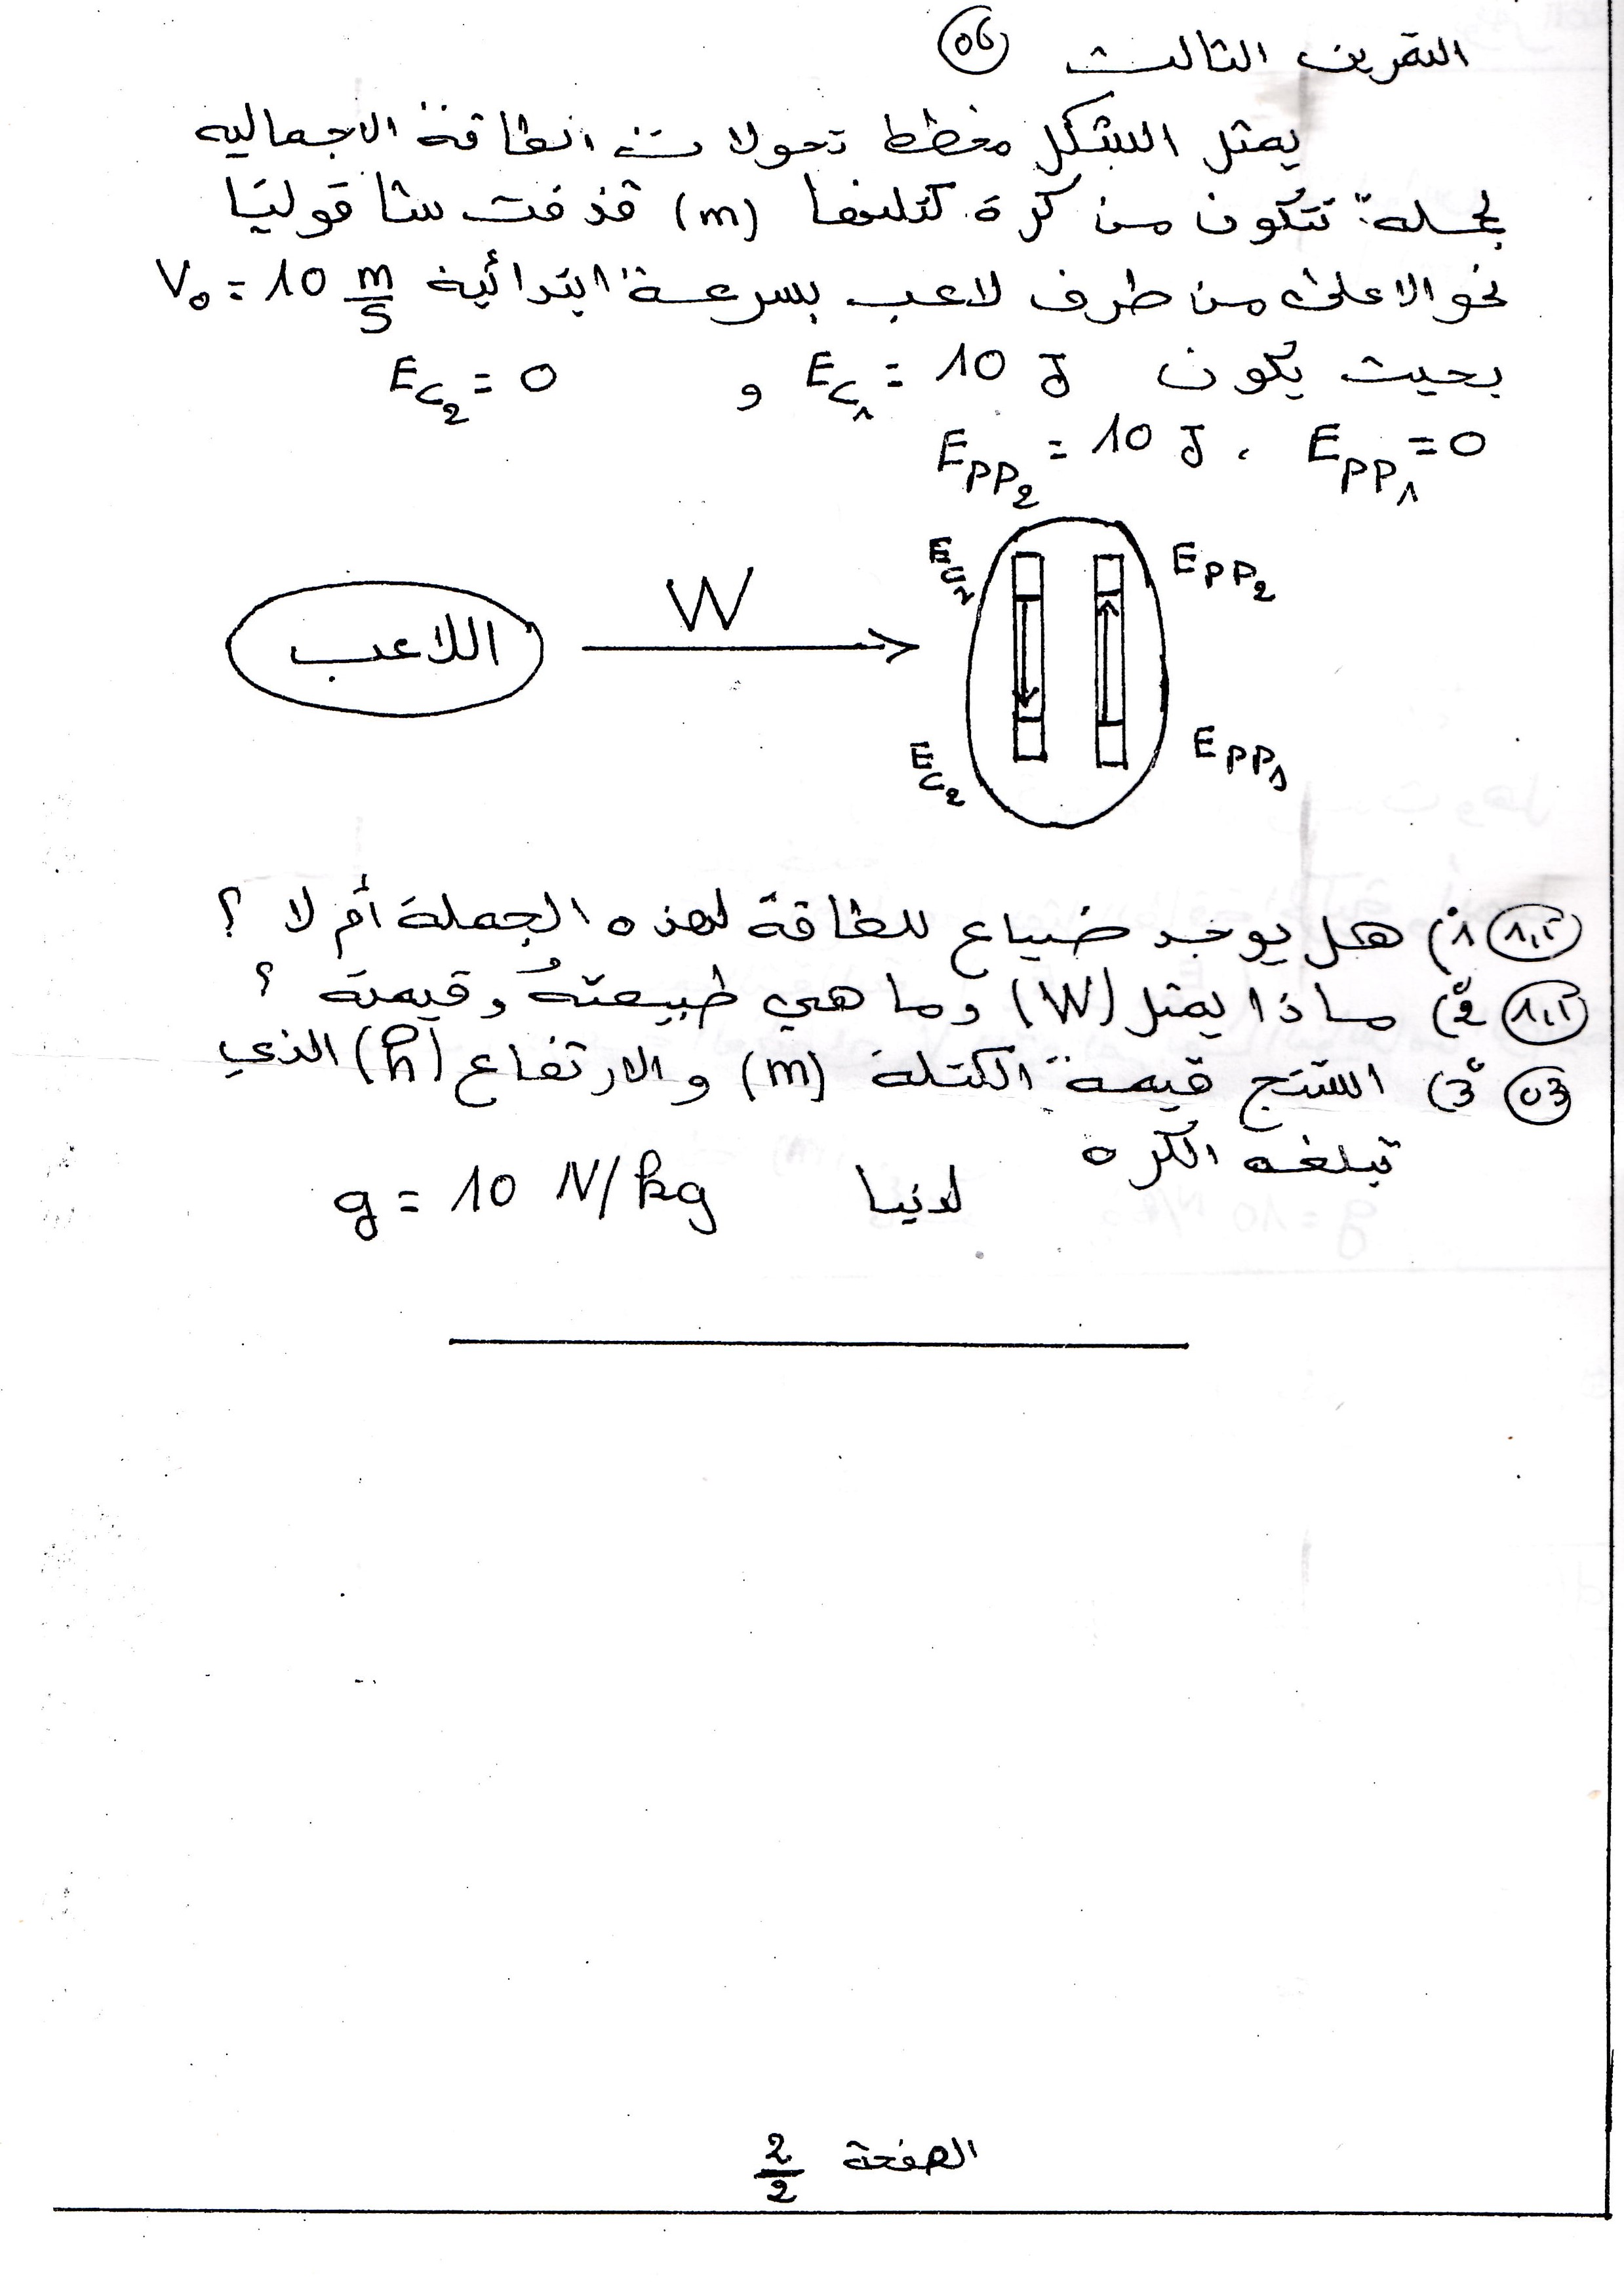 التمرين الثالث 06
يمثل الشكل مخطط تحولات الطاقة الاجمالية
لجملة تتكون من كرة كتلتها (m) قذفت شاقوليا
نحو الاعلى من طرف لاعب بسرعة ابتدائية V₀ = 10 m/s
بحيث يكون E_C₁ = 10 J و E_C₂ = 0
E_PP₁ = 0 ، E_PP₂ = 10 J
E_PP₂
W
اللاعب
E_C₂ E_PP₁
1,5 1) هل يوجد ضياع للطاقة لهذه الجملة أم لا ؟
1,5 2) ماذا يمثل (W) وما هي طبيعته وقيمته ؟
03 3) استنتج قيمة الكتلة (m) والارتفاع (h) الذي
تبلغه الكرة
لدنيا g = 10 N/kg
الصفحة 2/2